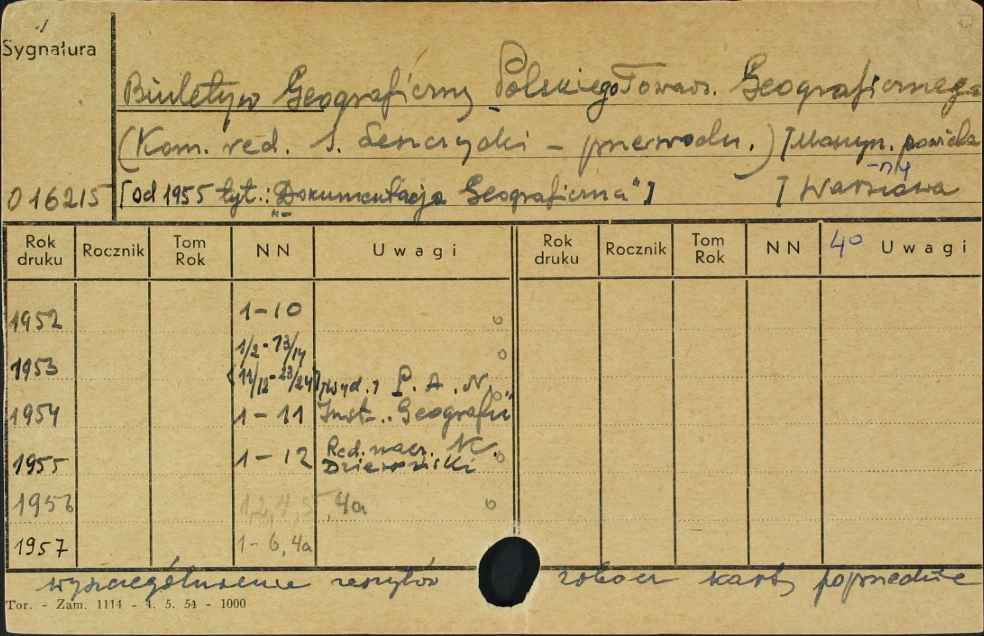 Sygnatura
Biuletyn Geograficzny Polskiego Towarz. Geograficznego
(Kom. red. S. Leszczycki - przewodn.) [Maszyn. powiela
-ny
016215 [od 1955 tyt.: "Dokumentacja Geograficzna"] [Warszawa
Rok druku Rocznik Tom Rok NN Uwagi Rok druku Rocznik Tom Rok NN 4° Uwagi
1952 1-10
1953 1/2-13/14
(11/12-23/24) [wyd.] P.A.N.
1954 1-11 Inst. Geografii
1955 1-12 Red. nacz. K. Dziewoński
1956 1,2,4,5,4a
1957 1-6, 4a
wyszczególnienie zeszytów zobacz karty poprzednie
Tor. - Zam. 1114 - 4. 5. 54 - 1000